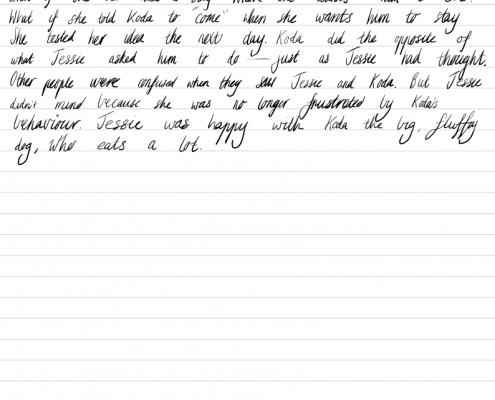 What if she told Koda to "come" when she wants him to stay
She tested her idea the next day. Koda did the opposite of
what Jessie asked him to do — just as Jessie had thought.
Other people were confused when they saw Jessie and Koda. But Jessie
didn't mind because she was no longer frustrated by Koda's
behaviour. Jessie was happy with Koda the big, fluffy
dog, who eats a lot.